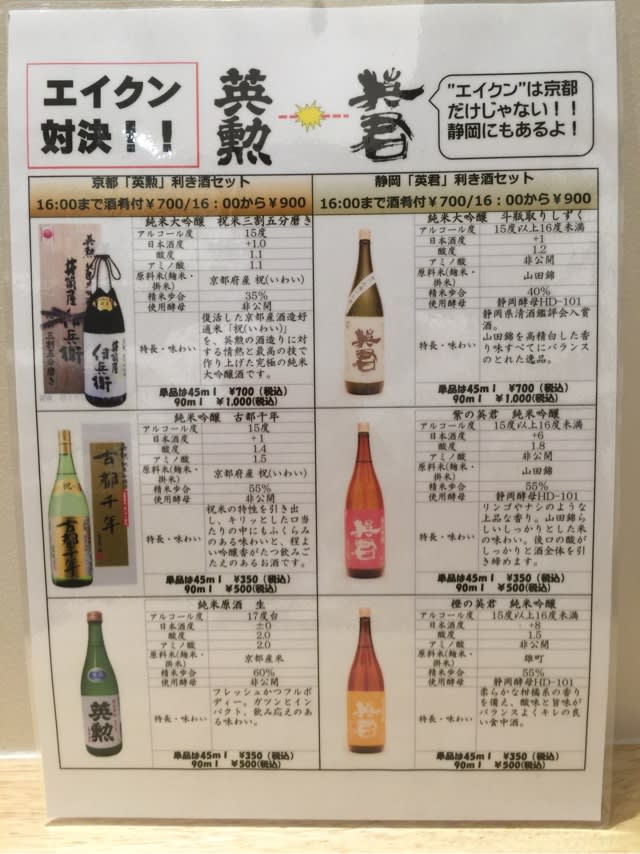 エイクン
対決！！
英勲
英君
"エイクン"は京都
だけじゃない！！
静岡にもあるよ！
京都「英勲」利き酒セット
16:00まで酒肴付￥700/16：00から￥900
純米大吟醸 祝米三割五分磨き
アルコール度 15度
日本酒度 +1.0
酸度 1.1
アミノ酸 1.1
原料米(麹米・掛米) 京都府産 祝(いわい)
精米歩合 35%
使用酵母 非公開
特長・味わい
復活した京都産酒造好
適米「祝(いわい)」
を、英勲の酒造りに対
する情熱と最高の技で
作り上げた究極の純米
大吟醸酒です。
単品は45ml ￥700（税込）
90ml ￥1,000(税込)
純米吟醸 古都千年
アルコール度 15度
日本酒度 +1
酸度 1.4
アミノ酸 1.5
原料米(麹米・掛米) 京都府産 祝(いわい)
精米歩合 55%
使用酵母 非公開
特長・味わい
祝米の特性を引き出
し、キリッとした口当
たりの中にもふくらみ
のある味わいと、程よ
い吟醸香がたつ飲みご
たえのあるお酒です。
単品は45ml ￥350（税込）
90ml ￥500(税込)
純米原酒 生
アルコール度 17度台
日本酒度 ±0
酸度 2.0
アミノ酸 2.0
原料米(麹米・掛米) 京都産米
精米歩合 60%
使用酵母 非公開
特長・味わい
フレッシュかつフルボ
ディー。ガツンとイン
パクト、飲み応えのあ
る味わい。
単品は45ml ￥350（税込）
90ml ￥500(税込)
静岡「英君」利き酒セット
16:00まで酒肴付￥700/16：00から￥900
純米大吟醸 斗瓶取りしずく
アルコール度 15度以上16度未満
日本酒度 +1
酸度 1.2
アミノ酸 非公開
原料米(麹米・掛米) 山田錦
精米歩合 40%
使用酵母 静岡酵母HD-101
特長・味わい
静岡県清酒鑑評会入賞
酒。
山田錦を高精白した香
り味すべてにバランス
のとれた逸品。
単品は45ml ￥700（税込）
90ml ￥1,000(税込)
紫の英君 純米吟醸
アルコール度 15度以上16度未満
日本酒度 +6
酸度 1.8
アミノ酸 非公開
原料米(麹米・掛米) 山田錦
精米歩合 55%
使用酵母 静岡酵母HD-101
特長・味わい
リンゴやナシのような
上品な香り。山田錦ら
しいしっかりとした米
の味わい。後口の酸が
しっかりと酒全体を引
き締めます。
単品は45ml ￥350（税込）
90ml ￥500(税込)
橙の英君 純米吟醸
アルコール度 15度以上16度未満
日本酒度 +8
酸度 1.5
アミノ酸 非公開
原料米(麹米・掛米) 雄町
精米歩合 55%
使用酵母 静岡酵母HD-101
特長・味わい
柔らかな柑橘系の香り
を備え、酸味と旨味が
バランスよくキレの良
い食中酒。
単品は45ml ￥350（税込）
90ml ￥500(税込)
井筒屋
伊兵衛
三割五分磨き
古都千年
祝
古都千年
英勲
英君
英君
英君